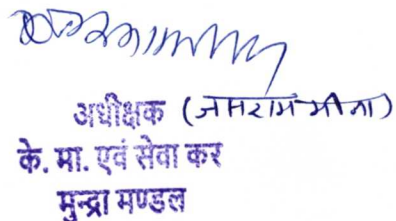 अधीक्षक (जयराम मीना)
के. मा. एवं सेवा कर
मुन्द्रा मण्डल